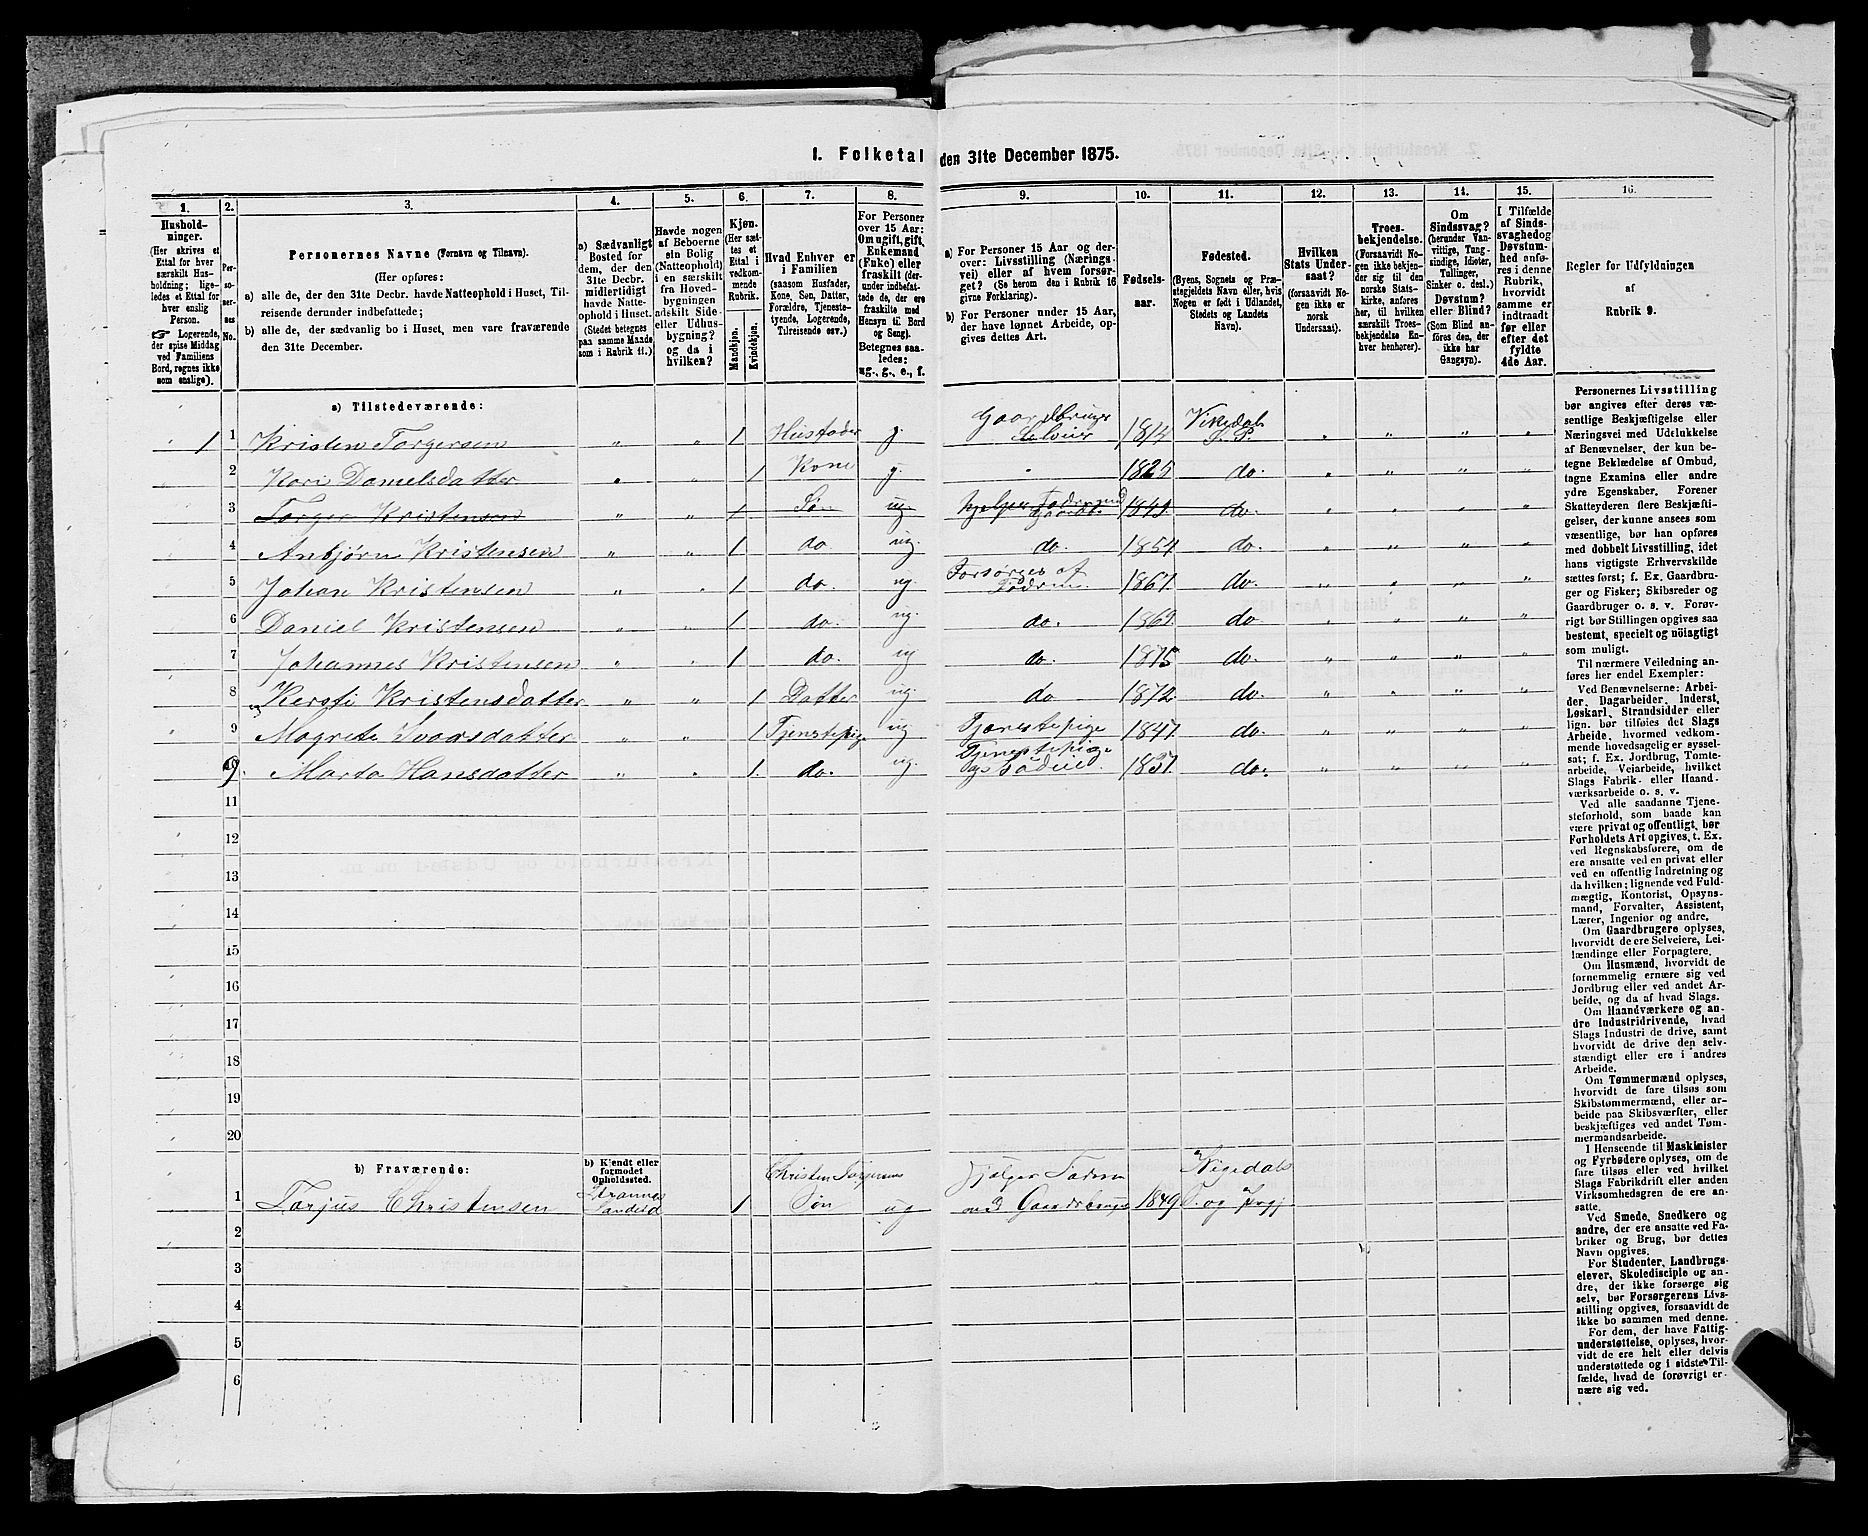 I. Folketal den 31te December 1875.
1. 2. 3. 4. 5. 6. 7. 8. 9. 10. 11. 12. 13. 14. 15. 16.
Hushold-
ninger.
(Her skrives et
Ettal for hver
særskilt Hus-
holdning; lige-
ledes et Ettal for
hver enslig
Person.
☞ Logerende,
der spise Middag
ved Familiens
Bord, regnes ikke
som enslige).
Per-
so-
ner-
nes
No.
Personernes Navne (Fornavn og Tilnavn).
(Her opføres:
a) alle de, der den 31te Decbr. havde Natteophold i Huset, Til-
reisende derunder indbefattede;
b) alle de, der sædvanlig bo i Huset, men vare fraværende
den 31te December.
a) Sædvanligt
Bosted for
dem, der den
31te Decbr.
midlertidigt
havde Natte-
ophold i Huset.
(Stedet betegnes
paa samme Maade
som i Rubrik 11.)
Havde nogen
af Beboerne
sin Bolig
(Natteophold)
i en særskilt
fra Hoved-
bygningen
adskilt Side-
eller Udhus-
bygning?
og da i
hvilken?
Kjøn.
(Her sæt-
tes et
Ettal i
vedkom-
mende
Rubrik.
Mandkjøn.
Kvindekjøn.
Hvad Enhver er
i Familien
(saasom Husfader,
Kone, Søn, Datter,
Forældre, Tjeneste-
tyende, Logerende,
Tilreisende osv.)
For Personer
over 15 Aar:
Om ugift, gift,
Enkemand
(Enke) eller
fraskilt (der-
under indbefat-
tede de, der ere
fraskilte med
Hensyn til Bord
og Seng).
Betegnes saa-
ledes:
ug., g., e., f.
a) For Personer 15 Aar og der-
over: Livsstilling (Nærings-
vei) eller af hvem forsør-
get? (Se herom den i Rubrik 16
givne Forklaring).
b) For Personer under 15 Aar,
der have lønnet Arbeide, op-
gives dettes Art.
Fødsels-
aar.
Fødested.
(Byens, Sognets og Præ-
stegjeldets Navn eller, hvis
Nogen er født i Udlandet,
Stedets og Landets
Navn).
Hvilken
Stats Under-
saat?
(forsaavidt No-
gen ikke er
norsk
Undersaat).
Troes-
bekjendelse.
(Forsaavidt No-
gen ikke bekjen-
der sig til den
norske Stats-
kirke, anføres
her, til hvilken
særskilt Troes-
bekjendelse En-
hver henhører).
Om
Sindssvag?
(herunder Van-
vittige, Tung-
sindige, Idioter,
Tullinger,
Sinker o. desl.)
Døvstum?
eller Blind?
(Som Blind an-
føres den, der
ikke har
Gangsyn).
I Tilfælde
af Sinds-
svaghed og
Døvstum-
hed anfø-
res i denne
Rubrik,
hvorvidt
samme er
indtraadt
før eller
efter det
fyldte
4de Aar.
Regler for Udfyldningen
af
Rubrik 9.
a) Tilstedeværende:
1 1 Kristen Torgersen „ „ 1 Husfader g. Gaardbruger Selveier 181 Vikedal S. P. „ „ „ „
2 Kari Danielsdatter „ „ 1 Kone g „ 1825 do. „ „ „ „
3 Torger Kristensen „ „ 1 Søn ug. 1849 do. „ „ „ „
4 Anbjørn Kristensen „ „ 1 do ug. do. 1854 do. „ „ „ „
5 Johan Kristensen „ „ 1 do. ug. Forsørges af Fadren. 1867 do. „ „ „ „
6 Daniel Kristensen „ „ 1 do. ug. do. 1869 do. „ „ „ „
7 Johannes Kristensen „ „ 1 do. ug do. 1875 do. „ „ „ „
8 Kersti Kristensdatter „ „ 1 Datter ug. do 1872 do. „ „ „ „
9 Magrete Svarsdatter „ „ 1 Tjenstepige ug Tjænestepige 1847 do. „ „ „ „
10 Marta Hansdatter „ „ 1. do. ug. Tjenestepige 1857 do. „ „ „ „
11
12
13
14
15
16
17
18
19
20
b) Fraværende:
b) Kjendt eller
formodet
Opholdssted.
1 Torjus Christensen Sandeid 1 Christen Torgersens Søn ug Hjælper Fadren med Gaardsbruget 1849 Vigedals S. og Prgj.
2
3
4
5
6
Personernes Livsstilling
bør angives efter deres væ-
sentlige Beskjæftigelse eller
Næringsvei med Udelukkelse
af Benævnelser, der kun be-
tegne Beklædelse af Ombud,
tagne Examina eller andre
ydre Egenskaber. Forener
Skatteyderen flere Beskjæfti-
gelser, der kunne ansees som
væsentlige, bør han opføres
med dobbelt Livsstilling, idet
hans vigtigste Erhvervskilde
sættes først; f. Ex. Gaardbru-
ger og Fisker; Skibsreder og
Gaardbruger o. s. v. Forøv-
rigt bør Stillingen opgives saa
bestemt, specielt og nöiagtigt
som muligt.
Til nærmere Veiledning an-
føres her endel Exempler:
Ved Benævnelserne: Arbei-
der, Dagarbeider, Inderst,
Løskarl, Strandsidder eller
lign. bør tilføies det Slags
Arbeide, hvormed vedkom-
mende hovedsagelig er syssel-
sat; f. Ex. Jordbrug, Tomte-
arbeide, Veiarbeide, hvilket
Slags Fabrik- eller Haand-
værksarbeide o. s. v.
Ved alle saadanne Tjene-
steforhold, som baade kan
være privat og offentligt, bør
Forholdets Art opgives, t. Ex.
ved Regnskabsførere, om de
ere ansatte ved en privat eller
ved en offentlig Indretning og
da hvilken; lignende ved Fuld-
mægtig, Kontorist, Opsyns-
mand, Forvalter, Assistent,
Lærer, Ingeniør og andre.
Om Gaardbrugere oplyses,
hvorvidt de ere Selveiere, Lei-
lændinge eller Forpagtere.
Om Husmænd, hvorvidt de
fornemmelig ernære sig ved
Jordbrug eller ved andet Ar-
beide, og da af hvad Slags.
Om Haandværkere og an-
dre Industridrivende, hvad
Slags Industri de drive, samt
hvorvidt de drive den selv-
stændigt eller ere i andres
Arbeide.
Om Tømmermænd oplyses,
hvorvidt de fare tilsøs som
Skibstømmermænd, eller ar-
beide paa Skibsværfter, eller
beskjæftiges ved andet Tøm-
mermandsarbeide.
I Henseende til Maskinister
og Fyrbødere oplyses, om de
fare tilsøs eller ved hvilket
Slags Fabrikdrift eller anden
Virksomhedsgren de ere an-
satte.
Ved Smede, Snedkere og
andre, der ere ansatte ved Fa-
briker og Brug, bør dettes
Navn opgives.
For Studenter, Landbrugs-
elever, Skoledisciple og an-
dre, der ikke forsørge sig
selv, bør Forsørgerens Livs-
stilling opgives, forsaavidt de
ikke bo sammen med denne.
For dem, der have Fattig-
understøttelse, oplyses, hvor-
vidt de ere helt eller delvis
understøttede og i sidste Til-
fælde, hvad de forøvrigt er-
nære sig ved.